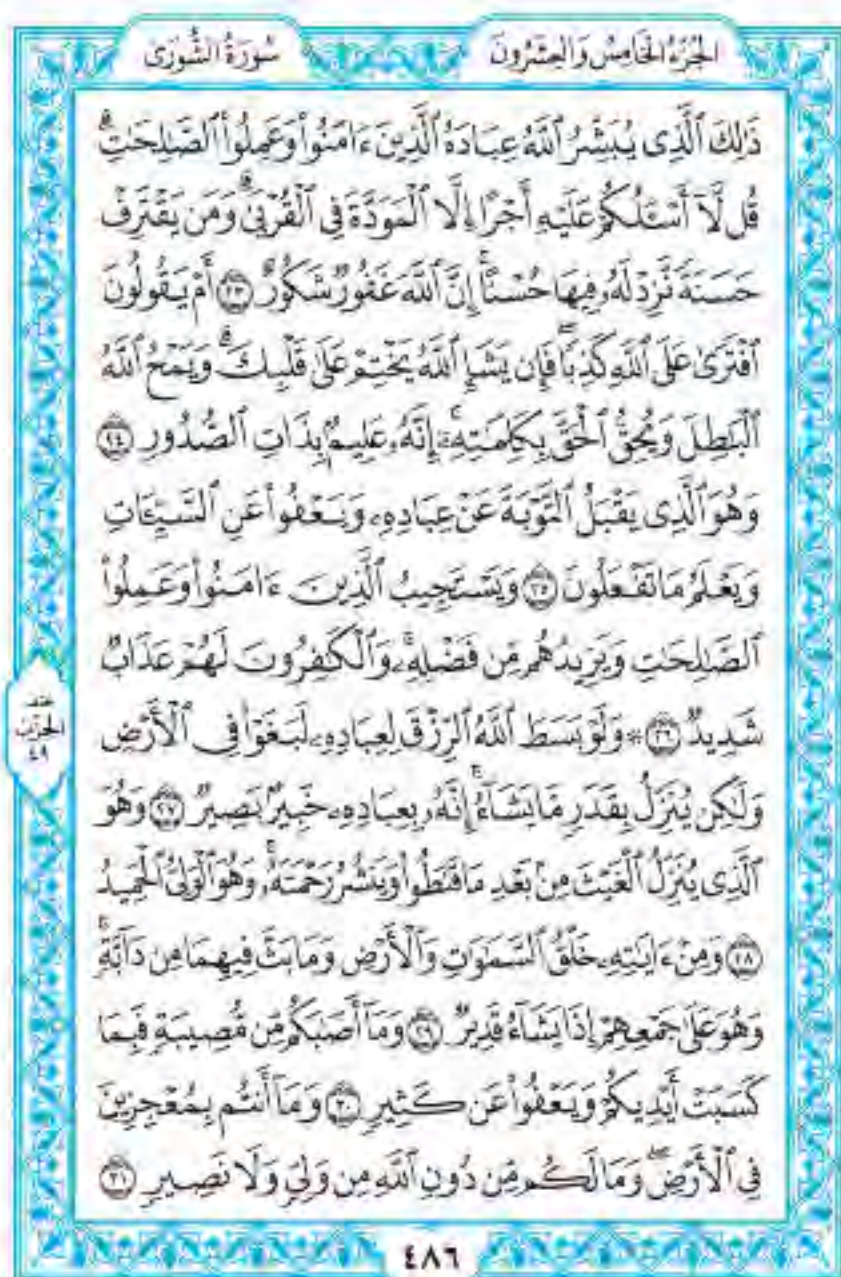 الجزء الخامس والعشرون
سورة الشورى
ذَٰلِكَ ٱلَّذِى يُبَشِّرُ ٱللَّهُ عِبَادَهُ ٱلَّذِينَ ءَامَنُوا۟ وَعَمِلُوا۟ ٱلصَّٰلِحَٰتِ ۗ
قُل لَّآ أَسْـَٔلُكُمْ عَلَيْهِ أَجْرًا إِلَّا ٱلْمَوَدَّةَ فِى ٱلْقُرْبَىٰ ۗ وَمَن يَقْتَرِفْ
حَسَنَةً نَّزِدْ لَهُۥ فِيهَا حُسْنًا ۚ إِنَّ ٱللَّهَ غَفُورٌ شَكُورٌ ٢٣ أَمْ يَقُولُونَ
ٱفْتَرَىٰ عَلَى ٱللَّهِ كَذِبًا ۖ فَإِن يَشَإِ ٱللَّهُ يَخْتِمْ عَلَىٰ قَلْبِكَ ۗ وَيَمْحُ ٱللَّهُ
ٱلْبَٰطِلَ وَيُحِقُّ ٱلْحَقَّ بِكَلِمَٰتِهِۦٓ ۚ إِنَّهُۥ عَلِيمٌۢ بِذَاتِ ٱلصُّدُورِ ٢٤
وَهُوَ ٱلَّذِى يَقْبَلُ ٱلتَّوْبَةَ عَنْ عِبَادِهِۦ وَيَعْفُوا۟ عَنِ ٱلسَّيِّـَٔاتِ
وَيَعْلَمُ مَا تَفْعَلُونَ ٢٥ وَيَسْتَجِيبُ ٱلَّذِينَ ءَامَنُوا۟ وَعَمِلُوا۟
ٱلصَّٰلِحَٰتِ وَيَزِيدُهُم مِّن فَضْلِهِۦ ۚ وَٱلْكَٰفِرُونَ لَهُمْ عَذَابٌ
شَدِيدٌ ٢٦ ۞ وَلَوْ بَسَطَ ٱللَّهُ ٱلرِّزْقَ لِعِبَادِهِۦ لَبَغَوْا۟ فِى ٱلْأَرْضِ
وَلَٰكِن يُنَزِّلُ بِقَدَرٍ مَّا يَشَآءُ ۚ إِنَّهُۥ بِعِبَادِهِۦ خَبِيرٌۢ بَصِيرٌ ٢٧ وَهُوَ
ٱلَّذِى يُنَزِّلُ ٱلْغَيْثَ مِنۢ بَعْدِ مَا قَنَطُوا۟ وَيَنشُرُ رَحْمَتَهُۥ ۚ وَهُوَ ٱلْوَلِىُّ ٱلْحَمِيدُ
٢٨ وَمِنْ ءَايَٰتِهِۦ خَلْقُ ٱلسَّمَٰوَٰتِ وَٱلْأَرْضِ وَمَا بَثَّ فِيهِمَا مِن دَآبَّةٍ ۚ
وَهُوَ عَلَىٰ جَمْعِهِمْ إِذَا يَشَآءُ قَدِيرٌ ٢٩ وَمَآ أَصَٰبَكُم مِّن مُّصِيبَةٍ فَبِمَا
كَسَبَتْ أَيْدِيكُمْ وَيَعْفُوا۟ عَن كَثِيرٍ ٣٠ وَمَآ أَنتُم بِمُعْجِزِينَ
فِى ٱلْأَرْضِ ۖ وَمَا لَكُم مِّن دُونِ ٱللَّهِ مِن وَلِىٍّ وَلَا نَصِيرٍ ٣١
الحزب
٤٩
٤٨٦